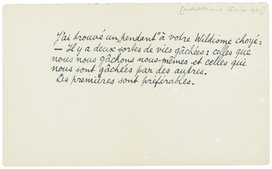 J'ai trouvé un pendant à votre Wildisme choyé:
— Il y a deux sortes de vies gâchées: celles que
nous nous gâchons nous-mêmes et celles qui
nous sont gâchées par des autres.
Les premières sont préférables.